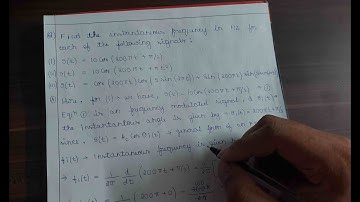 Q) Find the instantaneous frequency in Hz for
each of the following signals:
(i) s(t) = 10 cos (200πt + π/3)
(ii) s(t) = 10 cos (200πt + πt²)
(iii) s(t) = cos (200πt) cos (5 sin (2πt)) + sin (200πt) sin (5 sin 2πt)
Here, for (i) we have, s(t) = 10 cos (200πt + π/3) — ①
Eqⁿ ① is an frequency modulated signal &
the instantaneous angle is given by = θi(t) = 200πt + π/3
since, s(t) = Ac cos θi(t) → general form of an
fi(t) → Instantaneous frequency is given
→ fi(t) = 1/2π d/dt (200πt + π/3)
(200π + 0) = 200π/2π